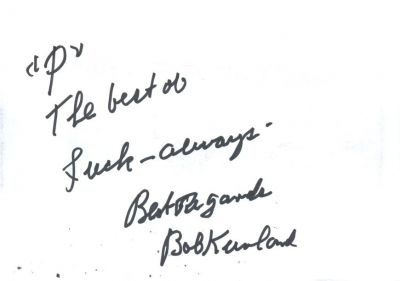 "P"
The best of
Luck - always -
Best Regards
Bob Kurland